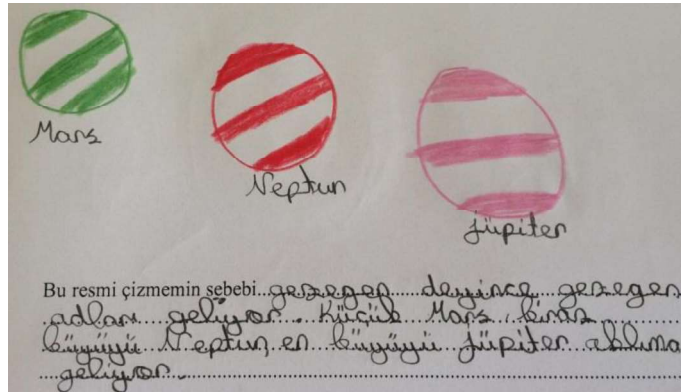 Mars
Neptun
jüpiter
Bu resmi çizmemin sebebi gezegen deyince gezegen
adları geliyor. Küçük Mars biraz
büyüyü Neptun, en büyüyü jüpiter aklıma
geliyor.